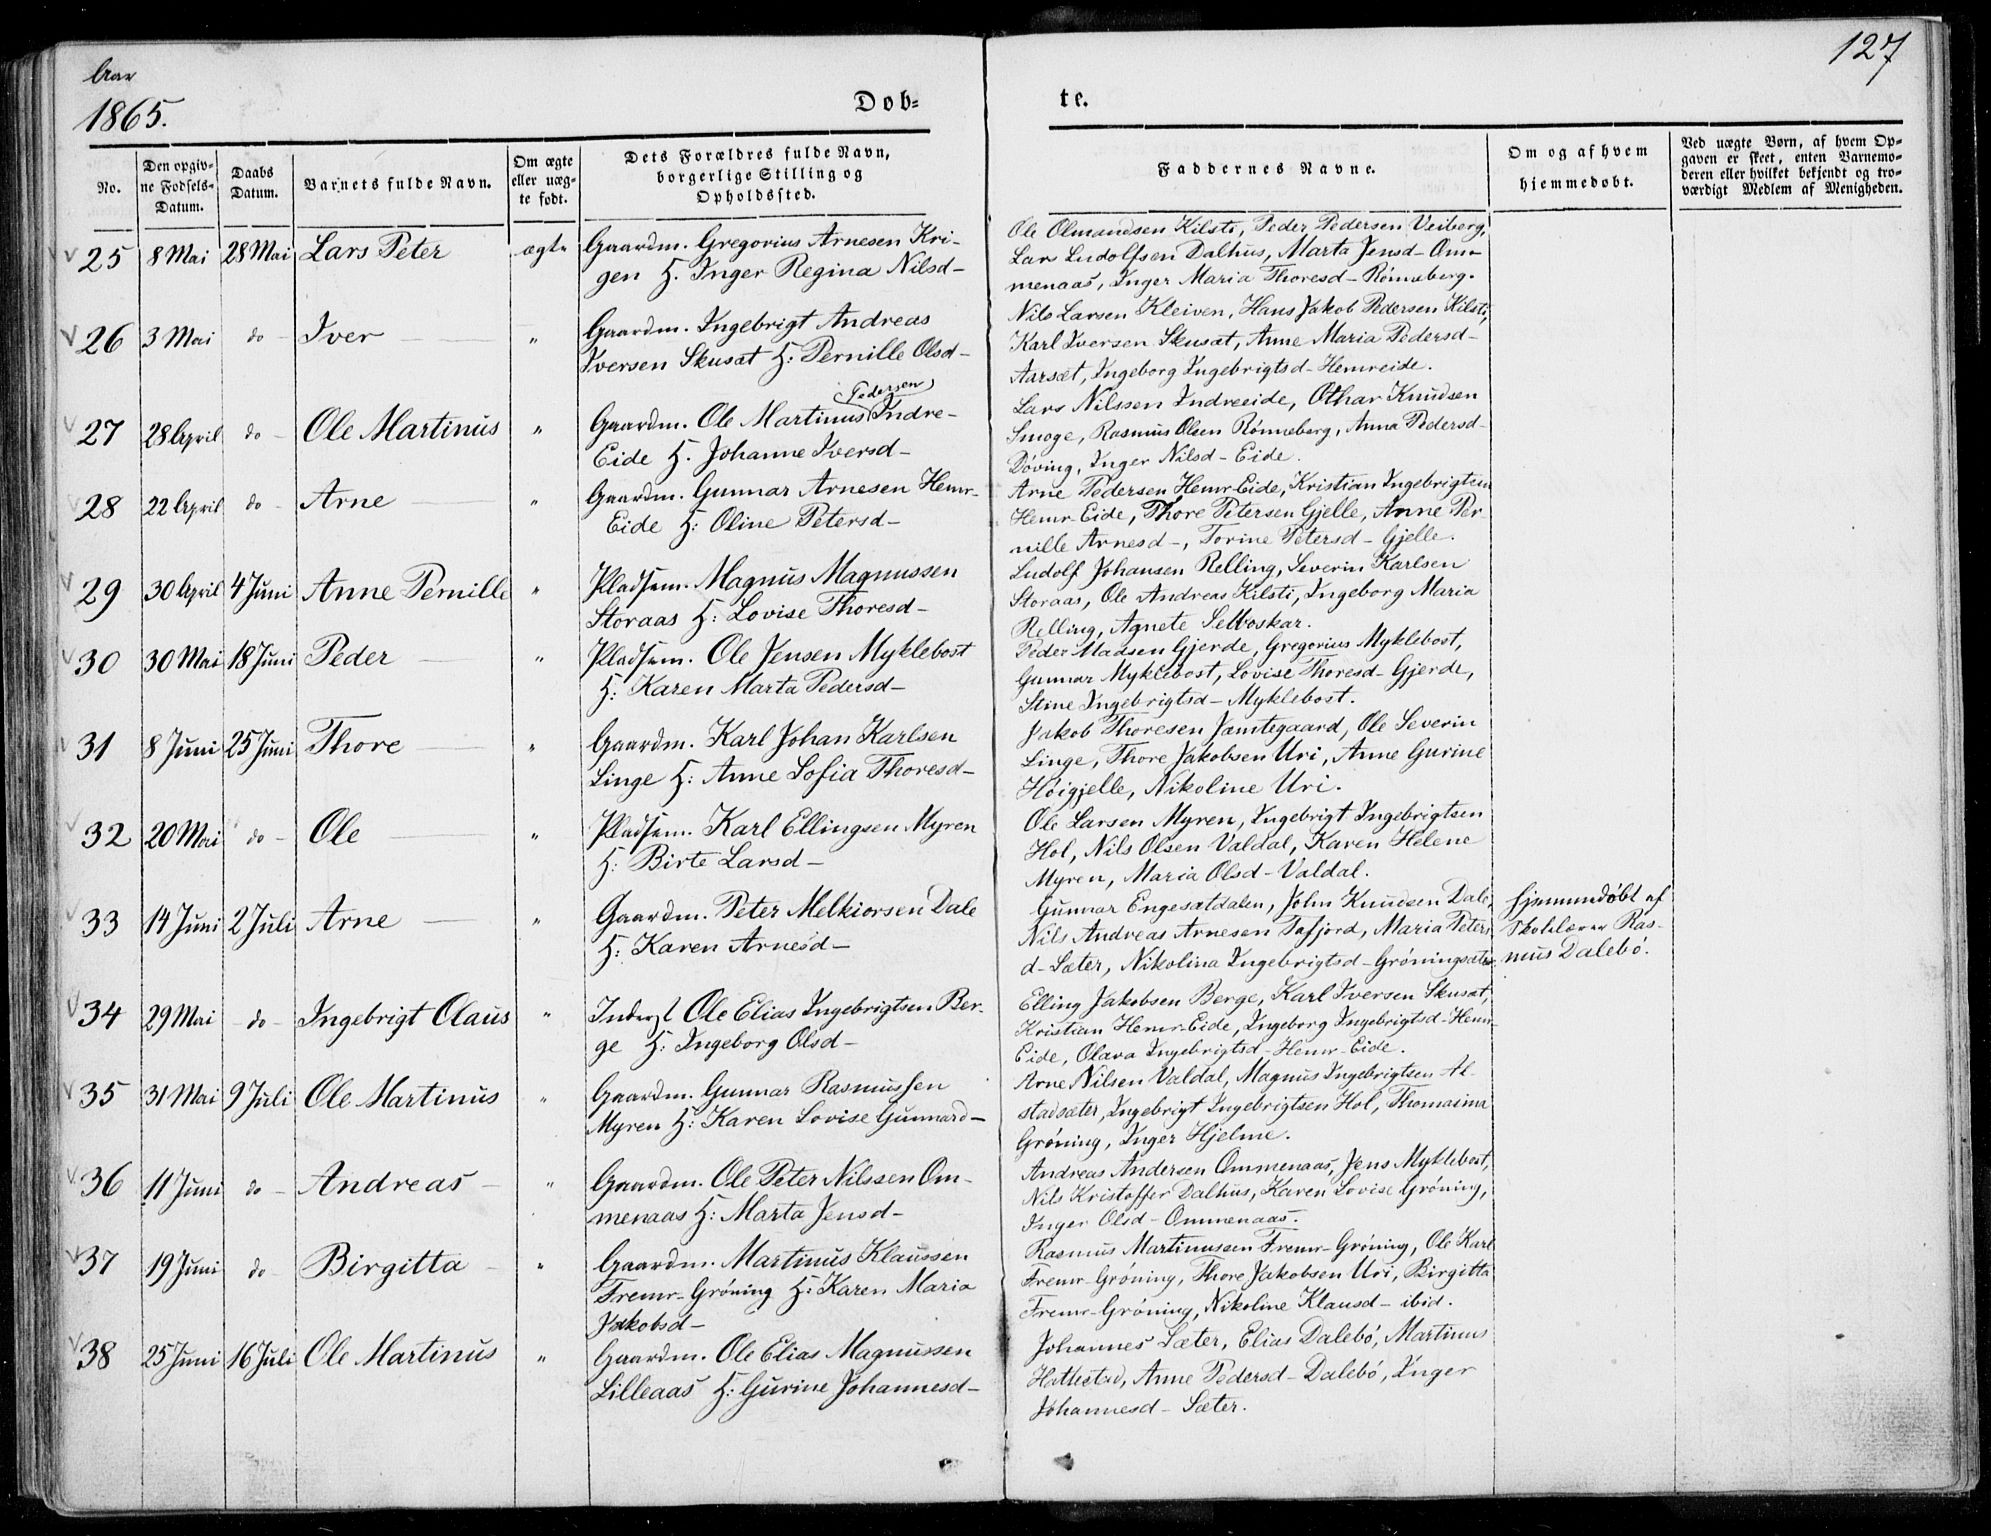 Aar
1865.
Døb=
te.
127
No.
Den opgiv-
ne Fødsels-
Datum.
Daabs
Datum.
Barnets fulde Navn.
Om ægte
eller uæg-
te født.
Dets Forældres fulde Navn,
borgerlige Stilling og
Opholdssted.
Faddernes Navne.
Om og af hvem
hjemmedøbt.
Ved uægte Børn, af hvem Op-
gaven er skeet, enten Barnemo-
deren eller hvilket bekjendt og tro-
værdigt Medlem af Menigheden.
25 8 Mai 28 Mai Lars Peter ægte Gaardm. Gregorius Arnesen Kri-
gen H. Inger Regina Nilsd-
Ole Olmandsen Kilsti, Peder Pedersen Veiberg,
Lars Ludolfsen Dalhus, Marta Jensd- Om-
menaas, Inger Maria Thoresd- Rønneberg.
26 3 Mai do - Iver " Gaardm. Ingebrigt Andreas
Iversen Skusat H: Pernille Olsd-
Nils Larsen Kleiven, Hans Jakob Pedersen Kilsti,
Karl Iversen Skusat, Anne Maria Pedersd-
Aarsæt, Ingeborg Ingebrigtsd- Hemreide.
27 28 April do - Ole Martinus " Gaardm. Ole Martinus (Pedersen) Indre-
Eide H. Johanne Iversd-
Lars Nilssen Indreeide, Othar Knudsen
Smoge, Rasmus Olsen Rønneberg, Anna Pedersd-
Døving, Inger Nilsd- Eide.
28 22 April do - Arne " Gaardm. Gunnar Arnesen Hemr-
Eide H: Oline Petersd-
Arne Pedersen Hemr-Eide, Kristian Ingebrigtsen
Hemr-Eide, Thore Petersen Gjelle, Anne Per-
nille Arnesd-, Torine Petersd- Gjelle.
29 30 April 4 Juni Anne Pernille " Pladsem. Magnus Magnussen
Storaas H: Lovise Thoresd-
Ludolf Johansen Relling, Severin Karlsen
Storaas, Ole Andreas Kilsti, Ingeborg Maria
Relling, Agnete Selboskar.
30 30 Mai 18 Juni Peder " Pladsem. Ole Jensen Myklebost
H: Karen Marta Pedersd-
Peder Madsen Gjerde, Gregorius Myklebost,
Gunnar Myklebost, Lovise Thoresd- Gjerde,
Stine Ingebrigtsd- Myklebost.
31 8 Juni 25 Juni Thore " Gaardm. Karl Johan Karlsen
Linge H: Anne Sofia Thoresd-
Jakob Thoresen Jamtegaard, Ole Severin
Linge, Thore Jakobsen Uri, Anne Gurine
Høigjelle, Nikoline Uri.
32 20 Mai do - Ole " Pladsem. Karl Ellingsen Myren
H: Birte Larsd-
Ole Larsen Myren, Ingebrigt Ingebrigtsen
Hol, Nils Olsen Valdal, Karen Helene
Myren, Maria Olsd- Valdal.
33 14 Juni 2 Juli Arne " Gaardm. Peter Melkiorsen Dale
H: Karen Arnesd-
Gunnar Engesætdalen, John Knudsen Dale,
Nils Andreas Arnesen Tafjord, Maria Peters
d- Sæter, Nikolina Ingebrigtsd- Grøningsæter.
Hjemmedøbt af
Skolelærer Ras-
mus Dalebø.
34 29 Mai - do - Ingebrigt Olaus " Inderst Ole Elias Ingebrigtsen Ber-
ge H: Ingeborg Olsd-
Elling Jakobsen Berge, Karl Iversen Skusat,
Kristian Hemr-Eide, Ingeborg Ingebrigtsd- Hemr-
Eide, Olava Ingebrigtsd- Hemr-Eide.
35 31 Mai 9 Juli Ole Martinus " Gaardm. Gunnar Rasmussen
Myren H: Karen Lovise Gunnard-
Arne Nilsen Valdal, Magnus Ingebrigtsen Al-
stadsæter, Ingebrigt Ingebrigtsen Hol, Thomaima
Grøning, Inger Hjelme.
36 11 Juni do - Andreas " Gaardm. Ole Peter Nilssen Om-
menaas H: Marta Jensd-
Andreas Andersen Ommenaas, Jens Myklebost,
Nils Kristoffer Dalhus, Karen Lovise Grøning,
Inger Olsd- Ommenaas.
37 19 Juni do - Birgitta " Gaardm. Martinus Klaussen
Fremr-Grøning H: Karen Maria
Jakobsd-
Rasmus Martinussen Fremr-Grøning, Ole Karl
Fremr-Grøning, Thore Jakobsen Uri, Birgitta
Fremr-Grøning, Nikoline Klausd- ibid.
38 25 Juni 16 Juli Ole Martinus " Gaardm. Ole Elias Magnussen
Lilleaas H: Gurine Johannesd-
Johannes Sæter, Elias Dalebø, Martinus
Hattestad, Anne Pedersd- Dalebø, Inger
Johannesd- Sæter.